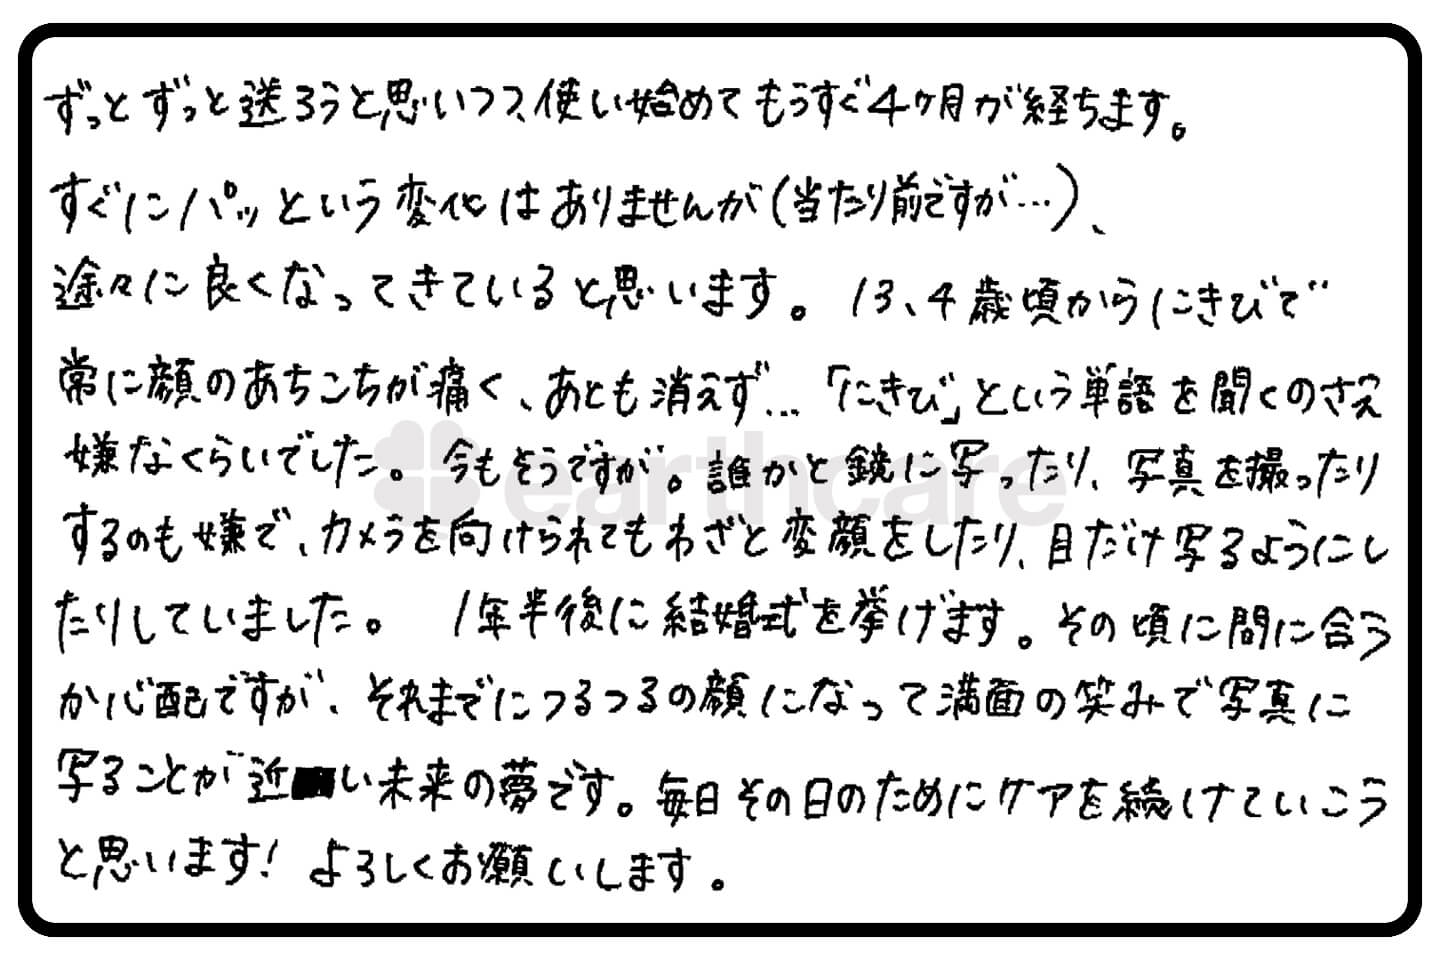 ずっとずっと送ろうと思いつつ、使い始めてもうすぐ4ヶ月が経ちます。
すぐにパッという変化はありませんが(当たり前ですが…)、
途々に良くなってきていると思います。13、4歳頃からにきびで
常に顔のあちこちが痛く、あとも消えず…「にきび」という単語を聞くのさえ
嫌なくらいでした。今もそうですが。誰かと鏡に写ったり、写真を撮ったり
するのも嫌で、カメラを向けられてもわざと変顔をしたり、目だけ写るようにし
たりしていました。 1年半後に結婚式を挙げます。その頃に間に合う
か心配ですが、それまでにつるつるの顔になって満面の笑みで写真に
写ることが近い未来の夢です。毎日その日のためにケアを続けていこう
と思います! よろしくお願いします。
earthcare